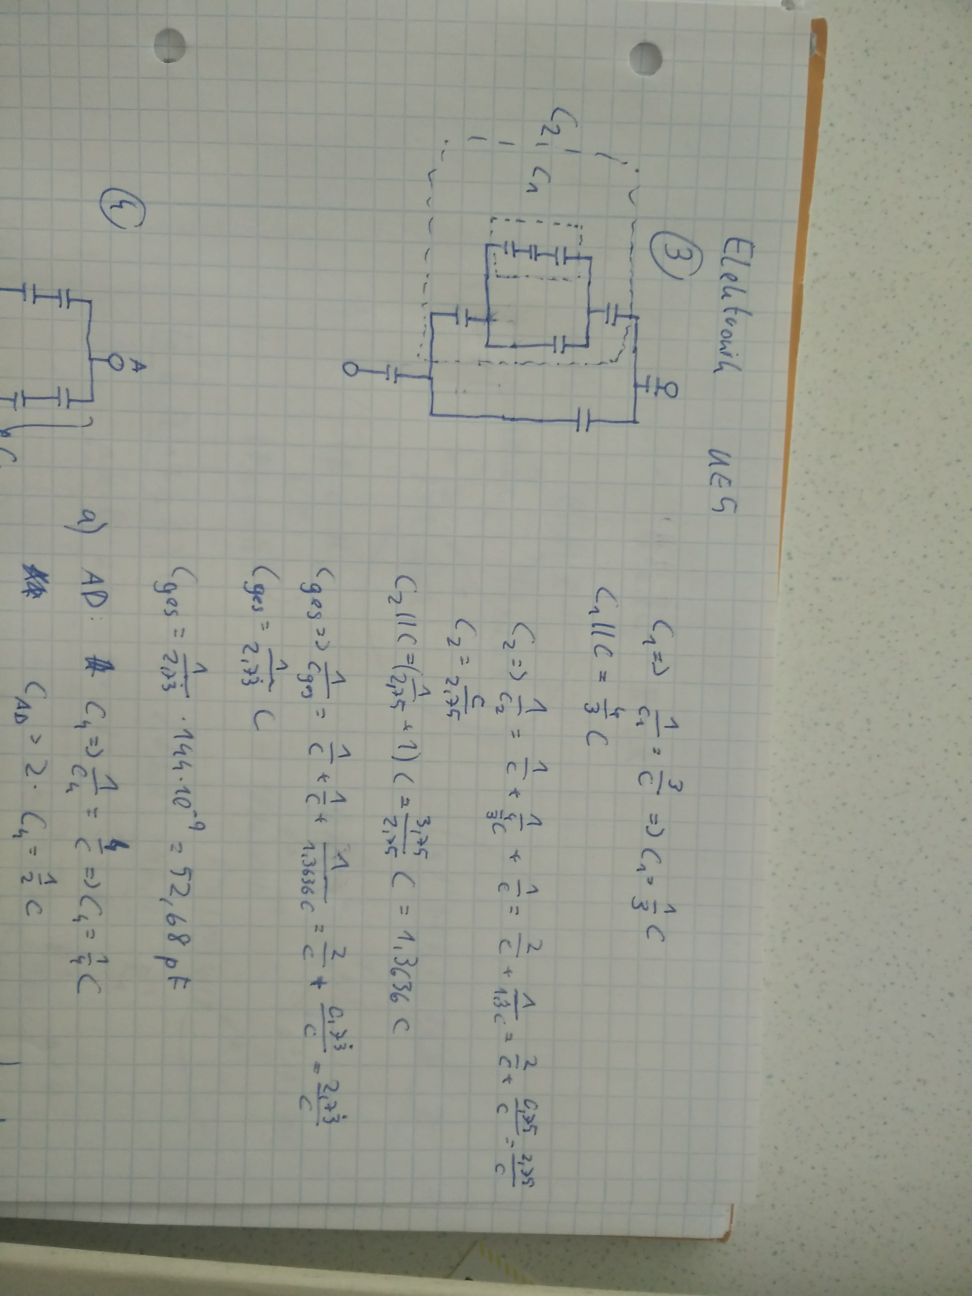 Elektronik UE5
③
C₂
C₁
C₁ => 1/C₁ = 3/C => C₁ = 1/3 C
C₁ || C = 4/3 C
C₂ => 1/C₂ = 1/C + 1/(4/3 C) + 1/C = 2/C + 1/(1,3̇ C) = 2/C + 0,75/C = 2,75/C
C₂ = C/2,75
C₂ || C = (1/2,75 + 1) C = 3,75/2,75 C = 1,3636 C
Cges => 1/Cges = 1/C + 1/C + 1/(1,3636 C) = 2/C + 0,73̇/C = 2,73̇/C
Cges = 1/2,73̇ C
Cges = 1/2,73̇ · 144·10⁻⁹ = 52,68 pF
④
A
a) AD: C₄ => 1/C₄ = 4/C => C₄ = 1/4 C
C_AD = 2 · C₄ = 1/2 C